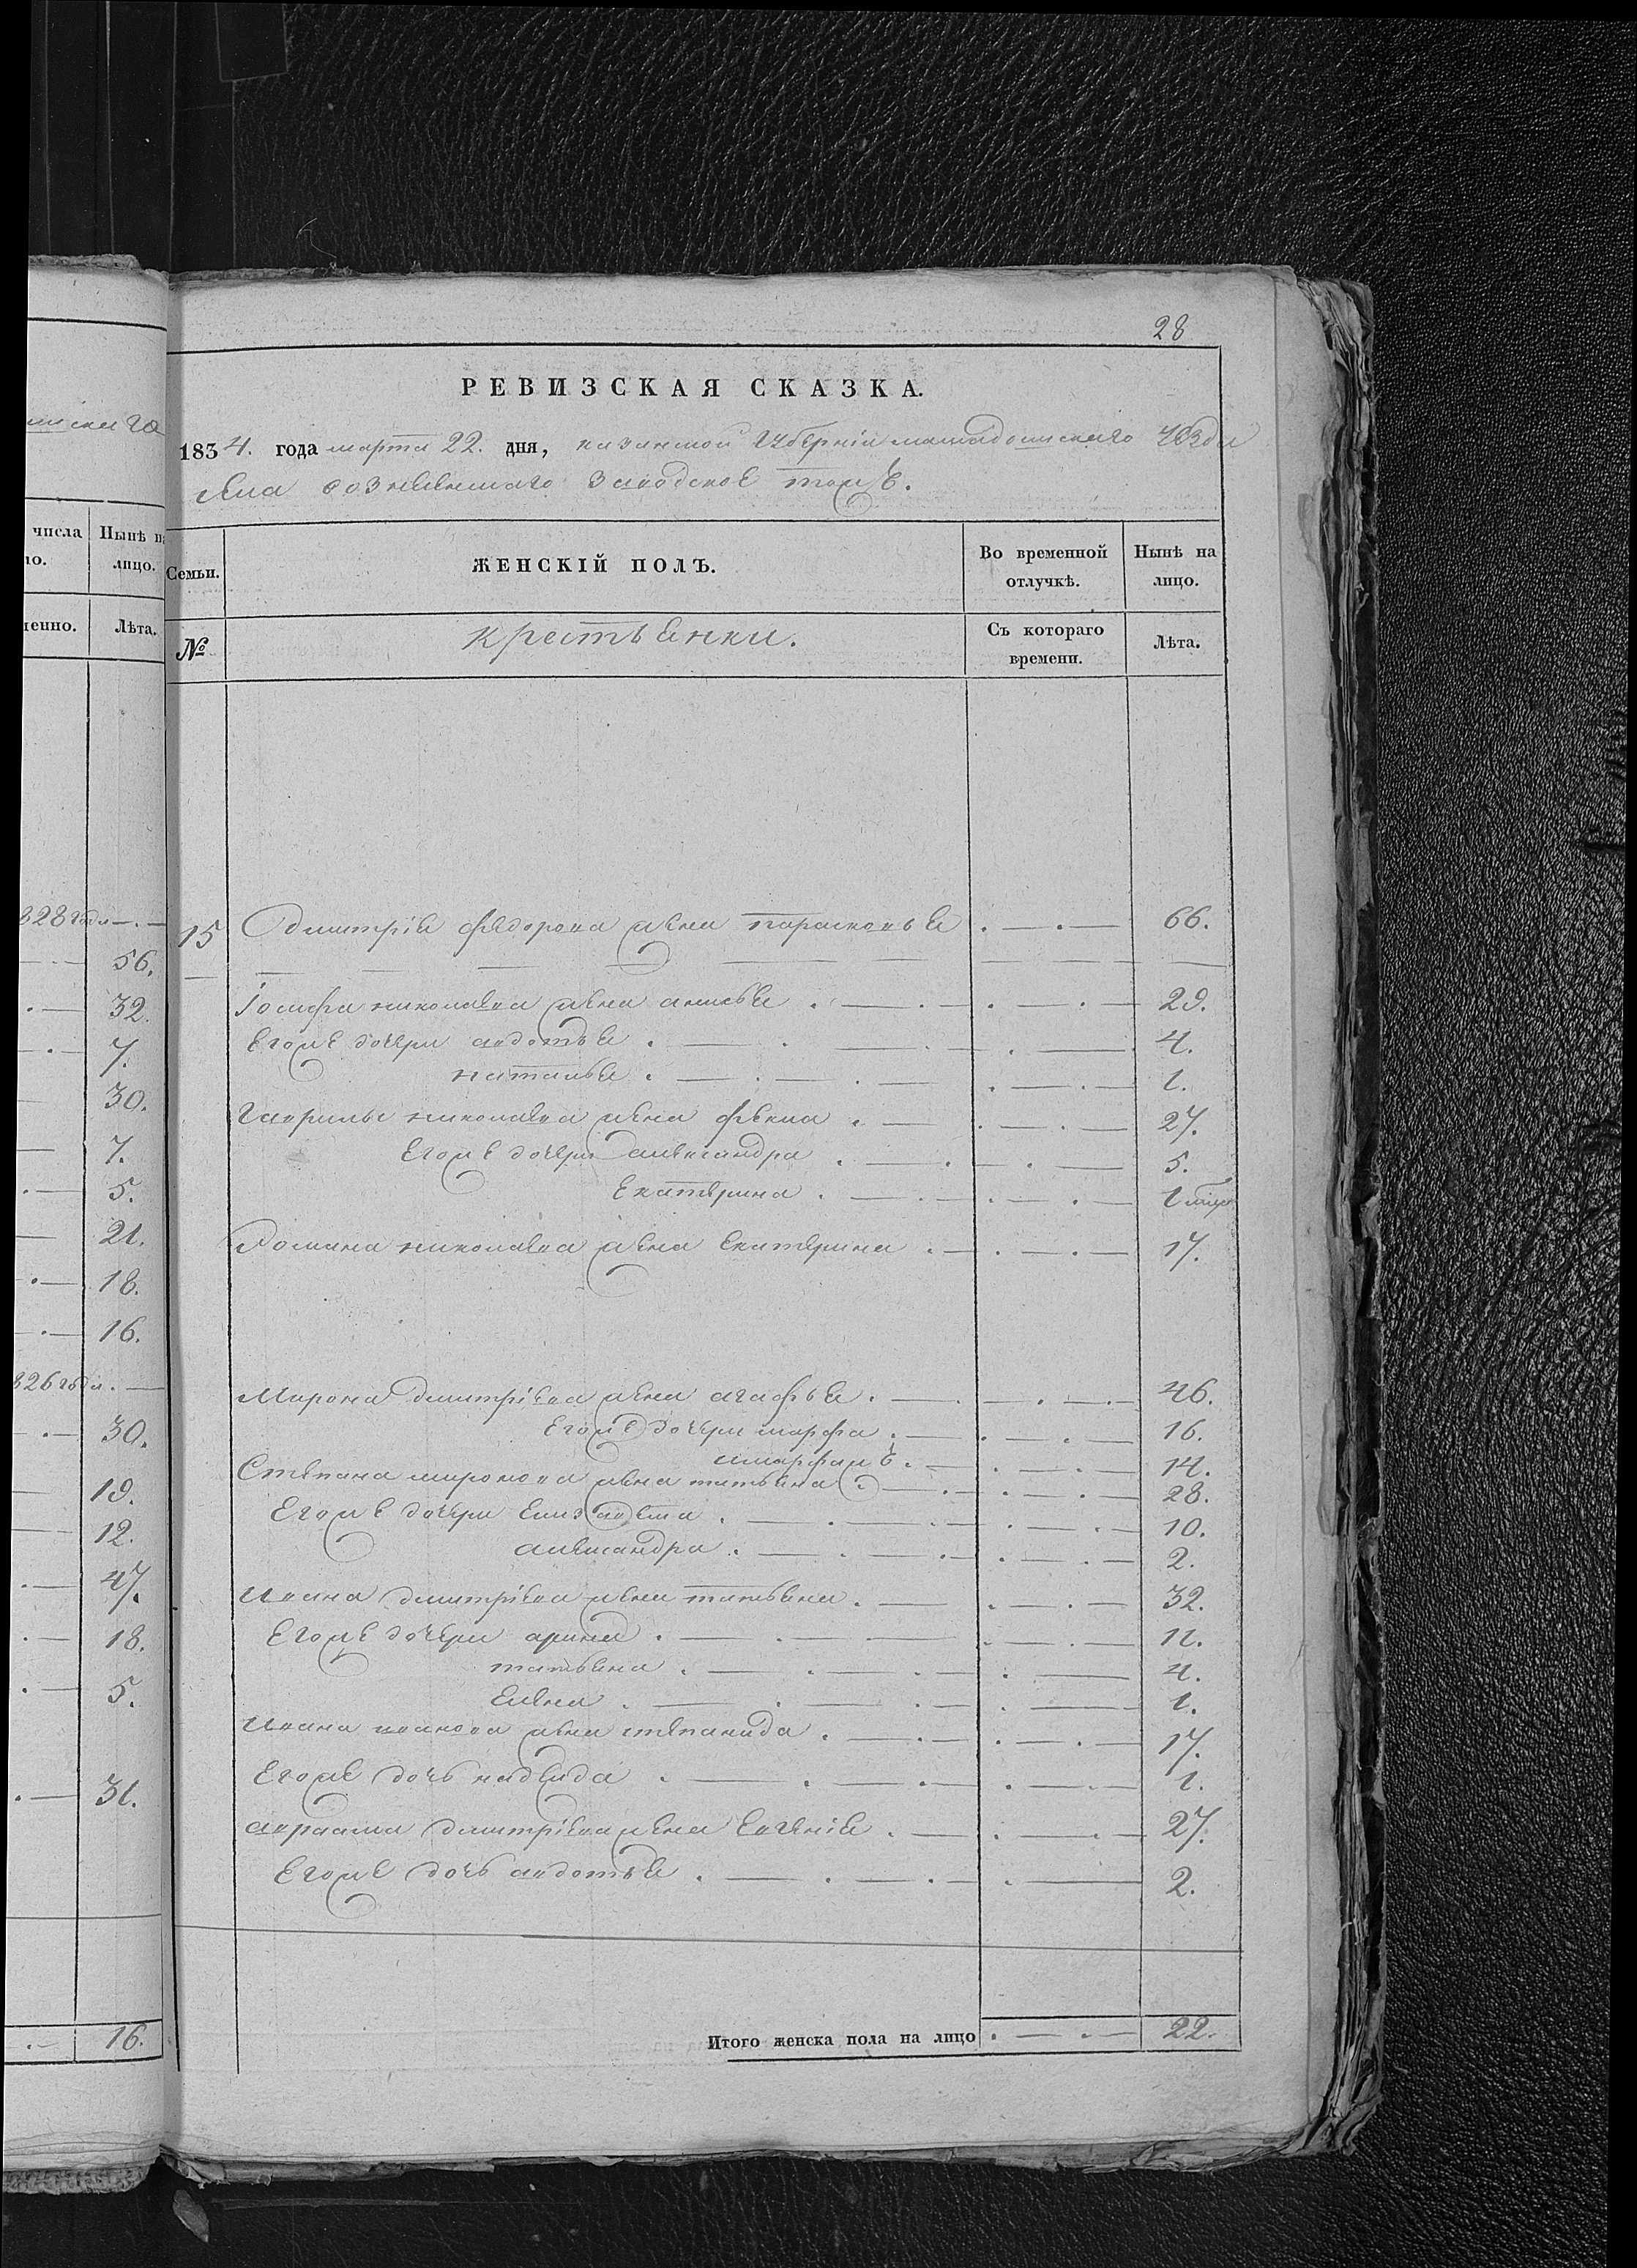 28
РЕВИЗСКАЯ СКАЗКА.
1834. года марта 22. дня, казанской губерніи мамадышскаго уѣзда
села вознесенскаго заводское тожъ.
числа
Нынѣ на
лицо.
Лѣта.
Семьи.
ЖЕНСКІЙ ПОЛЪ.
Во временной
отлучкѣ.
Нынѣ на
лицо.
№
крестьянки.
Съ котораго
времени.
Лѣта.
828 года
56.
32.
7.
30.
7.
5.
21.
18.
16.
826 года
30.
19.
12.
47.
18.
5.
31.
16.
15 Дмитрія федорова жена парасковья 66.
Іосифа николаева жена анисья 29.
Егоже дочери авдотья 4.
наталья 1.
Гаврилы николаева жена фекла 27.
Егоже дочери александра 5.
Екатерина 1
Романа николаева жена екатерина 17.
Мирона дмитріева жена агафья 46.
Егоже дочери марфа 16.
14.
Степана миронова жена татьяна 28.
Егоже дочери Елизавета 10.
александра 2.
Ивана дмитріева жена татьяна 32.
Егоже дочери арина 11.
татьяна 4.
Елена 1.
Ивана иванова жена степанида 17.
Егоже дочь надежда 1.
авраама дмитріева жена Евгенія 27.
Егоже дочь авдотья 2.
Итого женска пола на лицо 22.